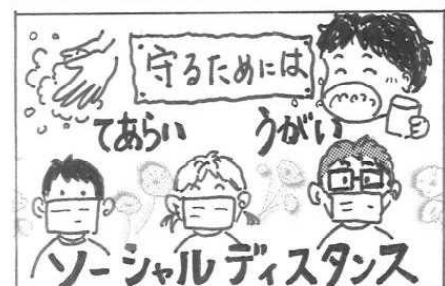 守るためには
てあらい うがい
ソーシャルディスタンス